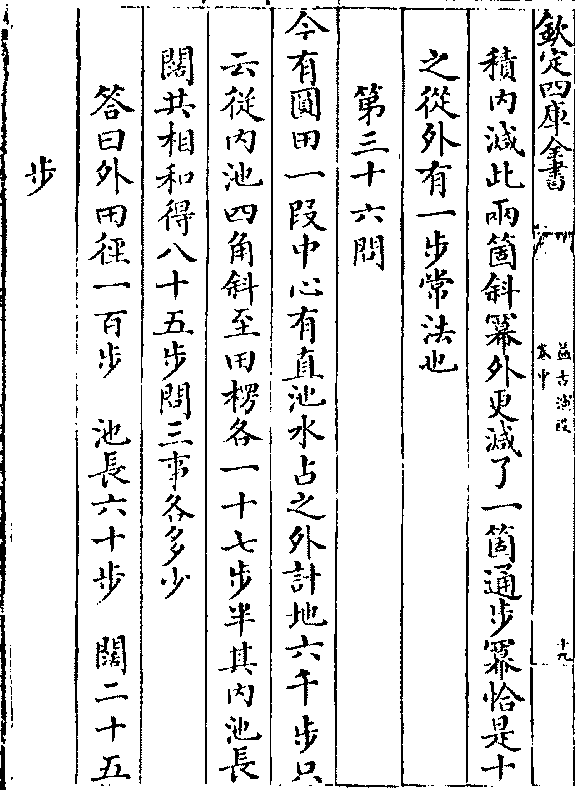 欽定四庫全書
益古演段
卷中
十九
積内減此兩箇斜冪外更減了一箇通步冪恰是十
之從外有一步常法也
第三十六問
今有圓田一段中心有直池水占之外計地六千步只
云從内池四角斜至田楞各一十七步半其内池長
闊共相和得八十五步問三事各多少
答曰外田徑一百步　池長六十步　闊二十五
步